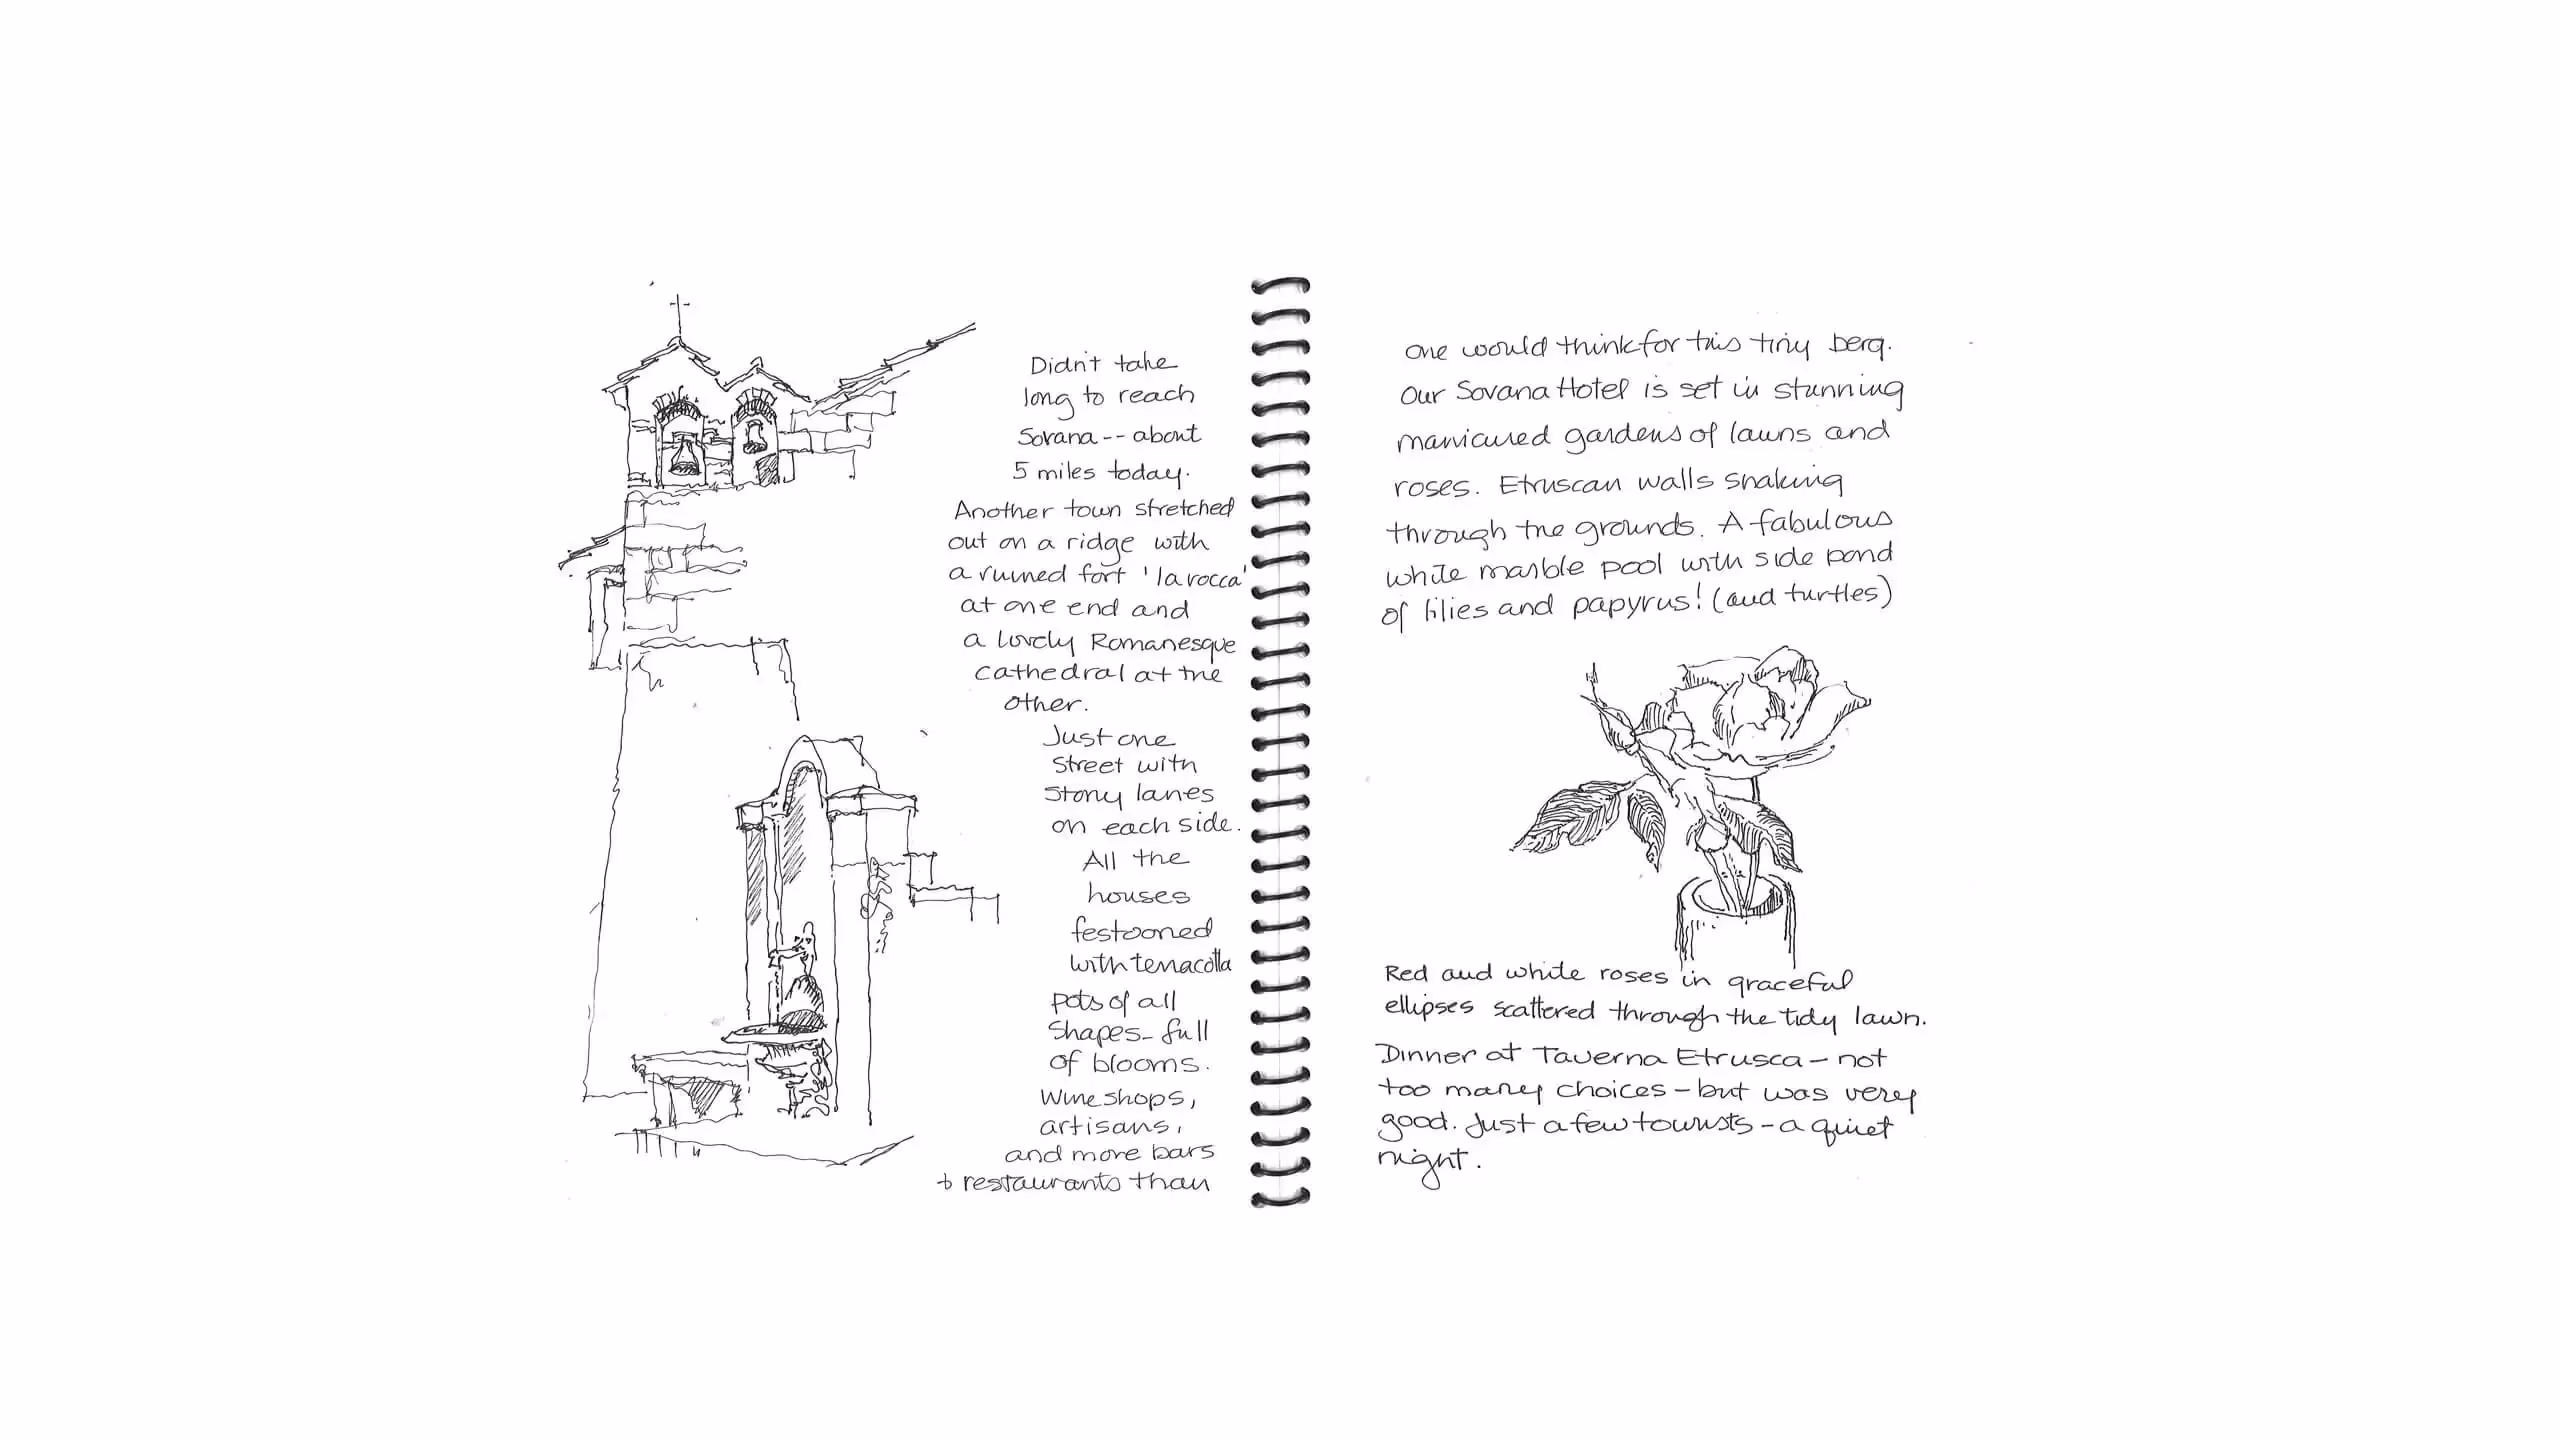 Didn't take
long to reach
Sovana -- about
5 miles today.
Another town stretched
out on a ridge with
a ruined fort 'la rocca'
at one end and
a lovely Romanesque
cathedral at the
other.
Just one
street with
stony lanes
on each side.
All the
houses
festooned
with terracotta
pots of all
shapes - full
of blooms.
Wine shops,
artisans,
and more bars
+ restaurants than
one would think for this tiny berg.
Our Sovana Hotel is set in stunning
manicured gardens of lawns and
roses. Etruscan walls snaking
through the grounds. A fabulous
white marble pool with side pond
of lilies and papyrus! (and turtles)
Red and white roses in graceful
ellipses scattered through the tidy lawn.
Dinner at Taverna Etrusca - not
too many choices - but was very
good. Just a few tourists - a quiet
night.